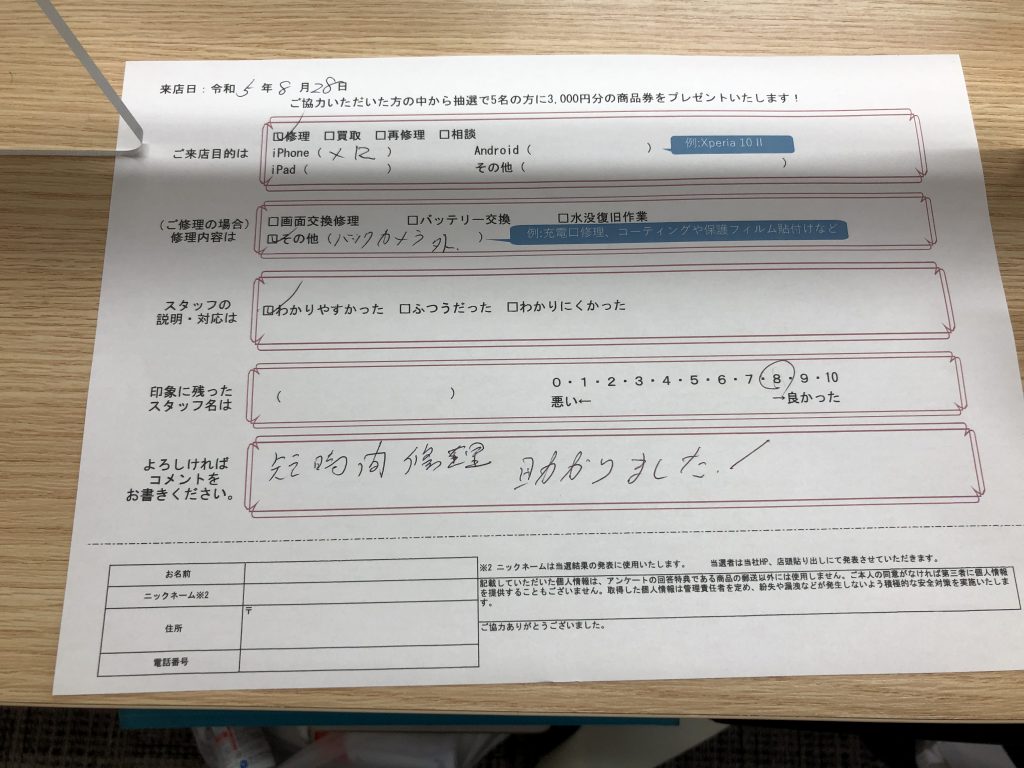 来店日：令和 5 年 8 月 28 日
ご協力いただいた方の中から抽選で5名の方に3,000円分の商品券をプレゼントいたします！
ご来店目的は
☑修理 □買取 □再修理 □相談
iPhone（ XR ） Android（ ） 例:Xperia 10 II
iPad（ ） その他（ ）
（ご修理の場合）
修理内容は
□画面交換修理 □バッテリー交換 □水没復旧作業
☑その他（バックカメラ 外. ） 例:充電口修理、コーティングや保護フィルム貼付けなど
スタッフの
説明・対応は
☑わかりやすかった □ふつうだった □わかりにくかった
印象に残った
スタッフ名は
（ ） 0・1・2・3・4・5・6・7・8・9・10
悪い← →良かった
よろしければ
コメントを
お書きください。
短時間修理 助かりました！
お名前
ニックネーム※2
住所
〒
電話番号
※2 ニックネームは当選結果の発表に使用いたします。 当選者は当社HP、店頭貼り出しにて発表させていただきます。
記載していただいた個人情報は、アンケートの回答特典である商品の郵送以外には使用しません。ご本人の同意がなければ第三者に個人情報
を提供することもございません。取得した個人情報は管理責任者を定め、紛失や漏洩などが発生しないよう積極的な安全対策を実施いたしま
す。
ご協力ありがとうございました。